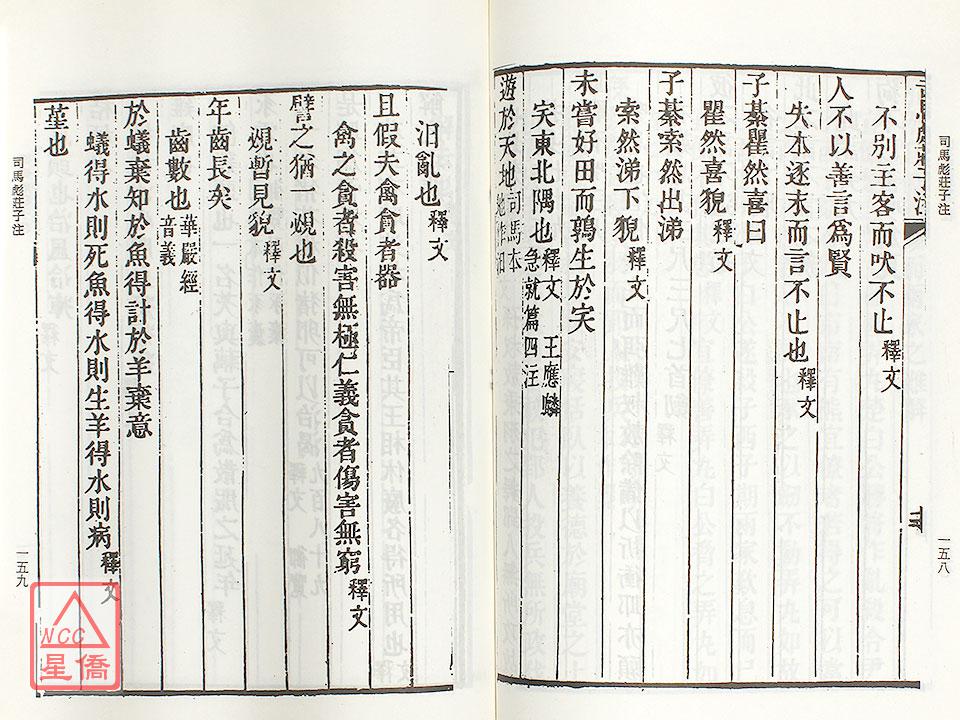 司馬彪莊子注
一五八
不別王客而吠不止釋文
人不以善言爲賢
失本逐末而言不止也釋文
子綦瞿然喜曰
瞿然喜貌釋文
子綦索然出涕
索然涕下貌釋文
未嘗好田而鶉生於宎
宎東北隅也釋文 王應麟急就篇四注
遊於天地司馬本地作汨
汨亂也釋文
且假夫禽貪者器
禽之貪者殺害無極仁義貪者傷害無窮釋文
譬之猶一覕也
覕暫見貌釋文
年齒長矣
齒數也華嚴經音義
於蟻棄知於魚得計於羊棄意
蟻得水則死魚得水則生羊得水則病釋文
堇也
司馬彪莊子注
一五九
NCC
星僑